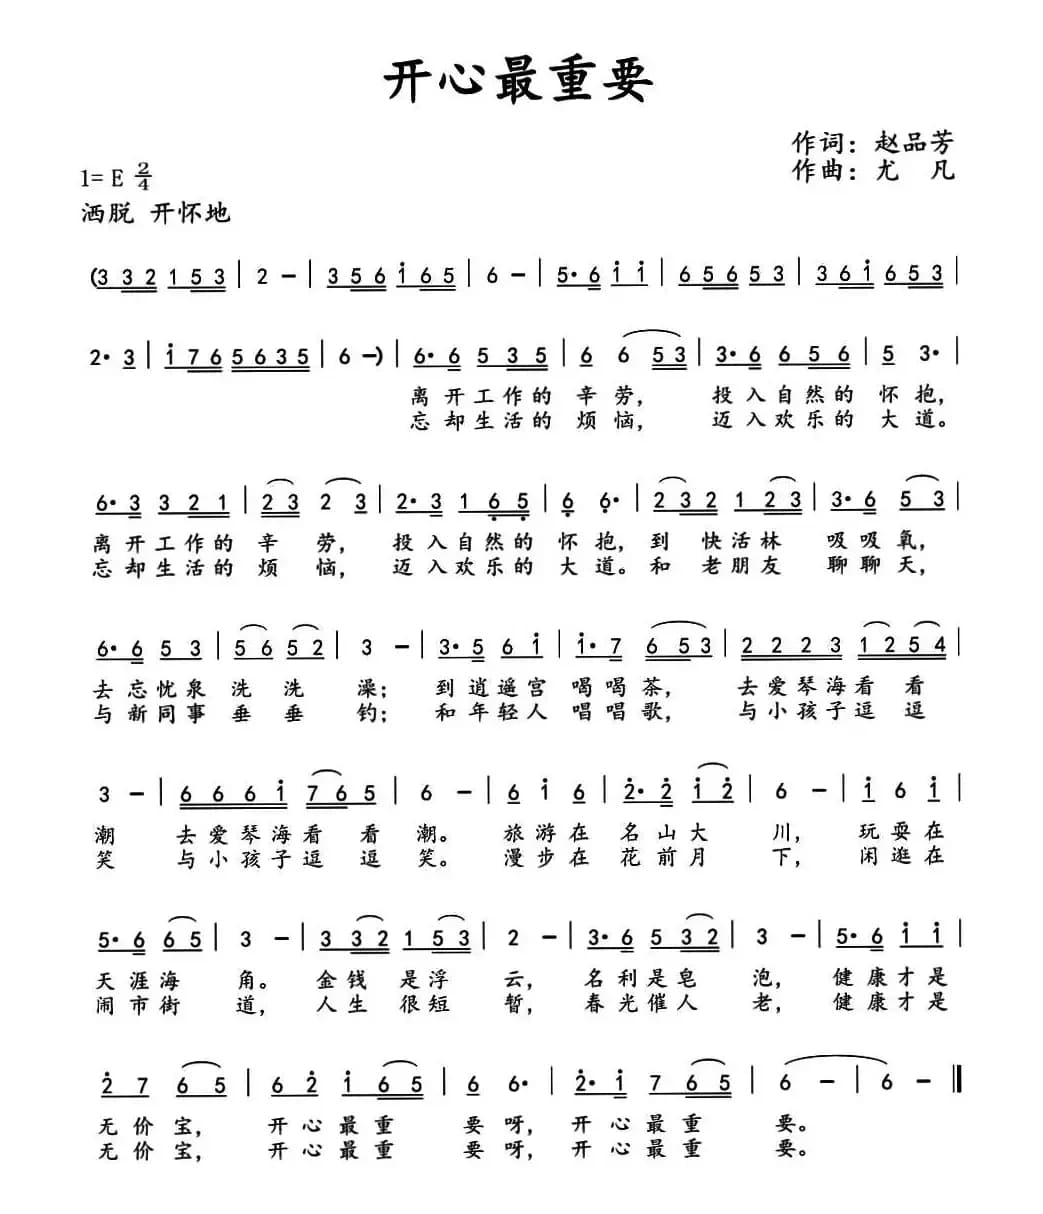 开心最重要
作词：赵品芳
作曲：尤 凡
1= E 2/4
洒脱 开怀地
(3 3 2 1 5 3 | 2 – | 3 5 6 i 6 5 | 6 – | 5· 6 i i | 6 5 6 5 3 | 3 6 i 6 5 3 |
2· 3 | i 7 6 5 6 3 5 | 6 –) | 6· 6 5 3 5 | 6 6 5 3 | 3· 6 6 5 6 | 5 3· |
离开工作的 辛劳， 投入自然的 怀抱，
忘却生活的 烦恼， 迈入欢乐的 大道。
6· 3 3 2 1 | 2 3 2 3 | 2· 3 1 6 5 | 6 6· | 2 3 2 1 2 3 | 3· 6 5 3 |
离开工作的 辛 劳， 投入自然的 怀抱，到 快活林 吸吸氧，
忘却生活的 烦 恼， 迈入欢乐的 大道。和 老朋友 聊聊天，
6· 6 5 3 | 5 6 5 2 | 3 – | 3· 5 6 i | i· 7 6 5 3 | 2 2 2 3 1 2 5 4 |
去忘忧泉 洗 洗 澡； 到逍遥宫 喝喝茶， 去爱琴海看 看
与新同事 垂 垂 钓； 和年轻人 唱唱歌， 与小孩子逗 逗
3 – | 6 6 6 i 7 6 5 | 6 – | 6 i 6 | 2· 2 i 2 | 6 – | i 6 i |
潮 去爱琴海看 看 潮。 旅游在 名山大 川， 玩耍在
笑 与小孩子逗 逗 笑。 漫步在 花前月 下， 闲逛在
5· 6 6 5 | 3 – | 3 3 2 1 5 3 | 2 – | 3· 6 5 3 2 | 3 – | 5· 6 i i |
天涯海 角。 金钱 是浮 云， 名利是皂 泡， 健康才是
闹市街 道， 人生 很短 暂， 春光催人 老， 健康才是
2 7 6 5 | 6 2 i 6 5 | 6 6· | 2· i 7 6 5 | 6 – | 6 – ‖
无价宝， 开心最重 要呀， 开心最重 要。
无价宝， 开心最重 要呀， 开心最重 要。